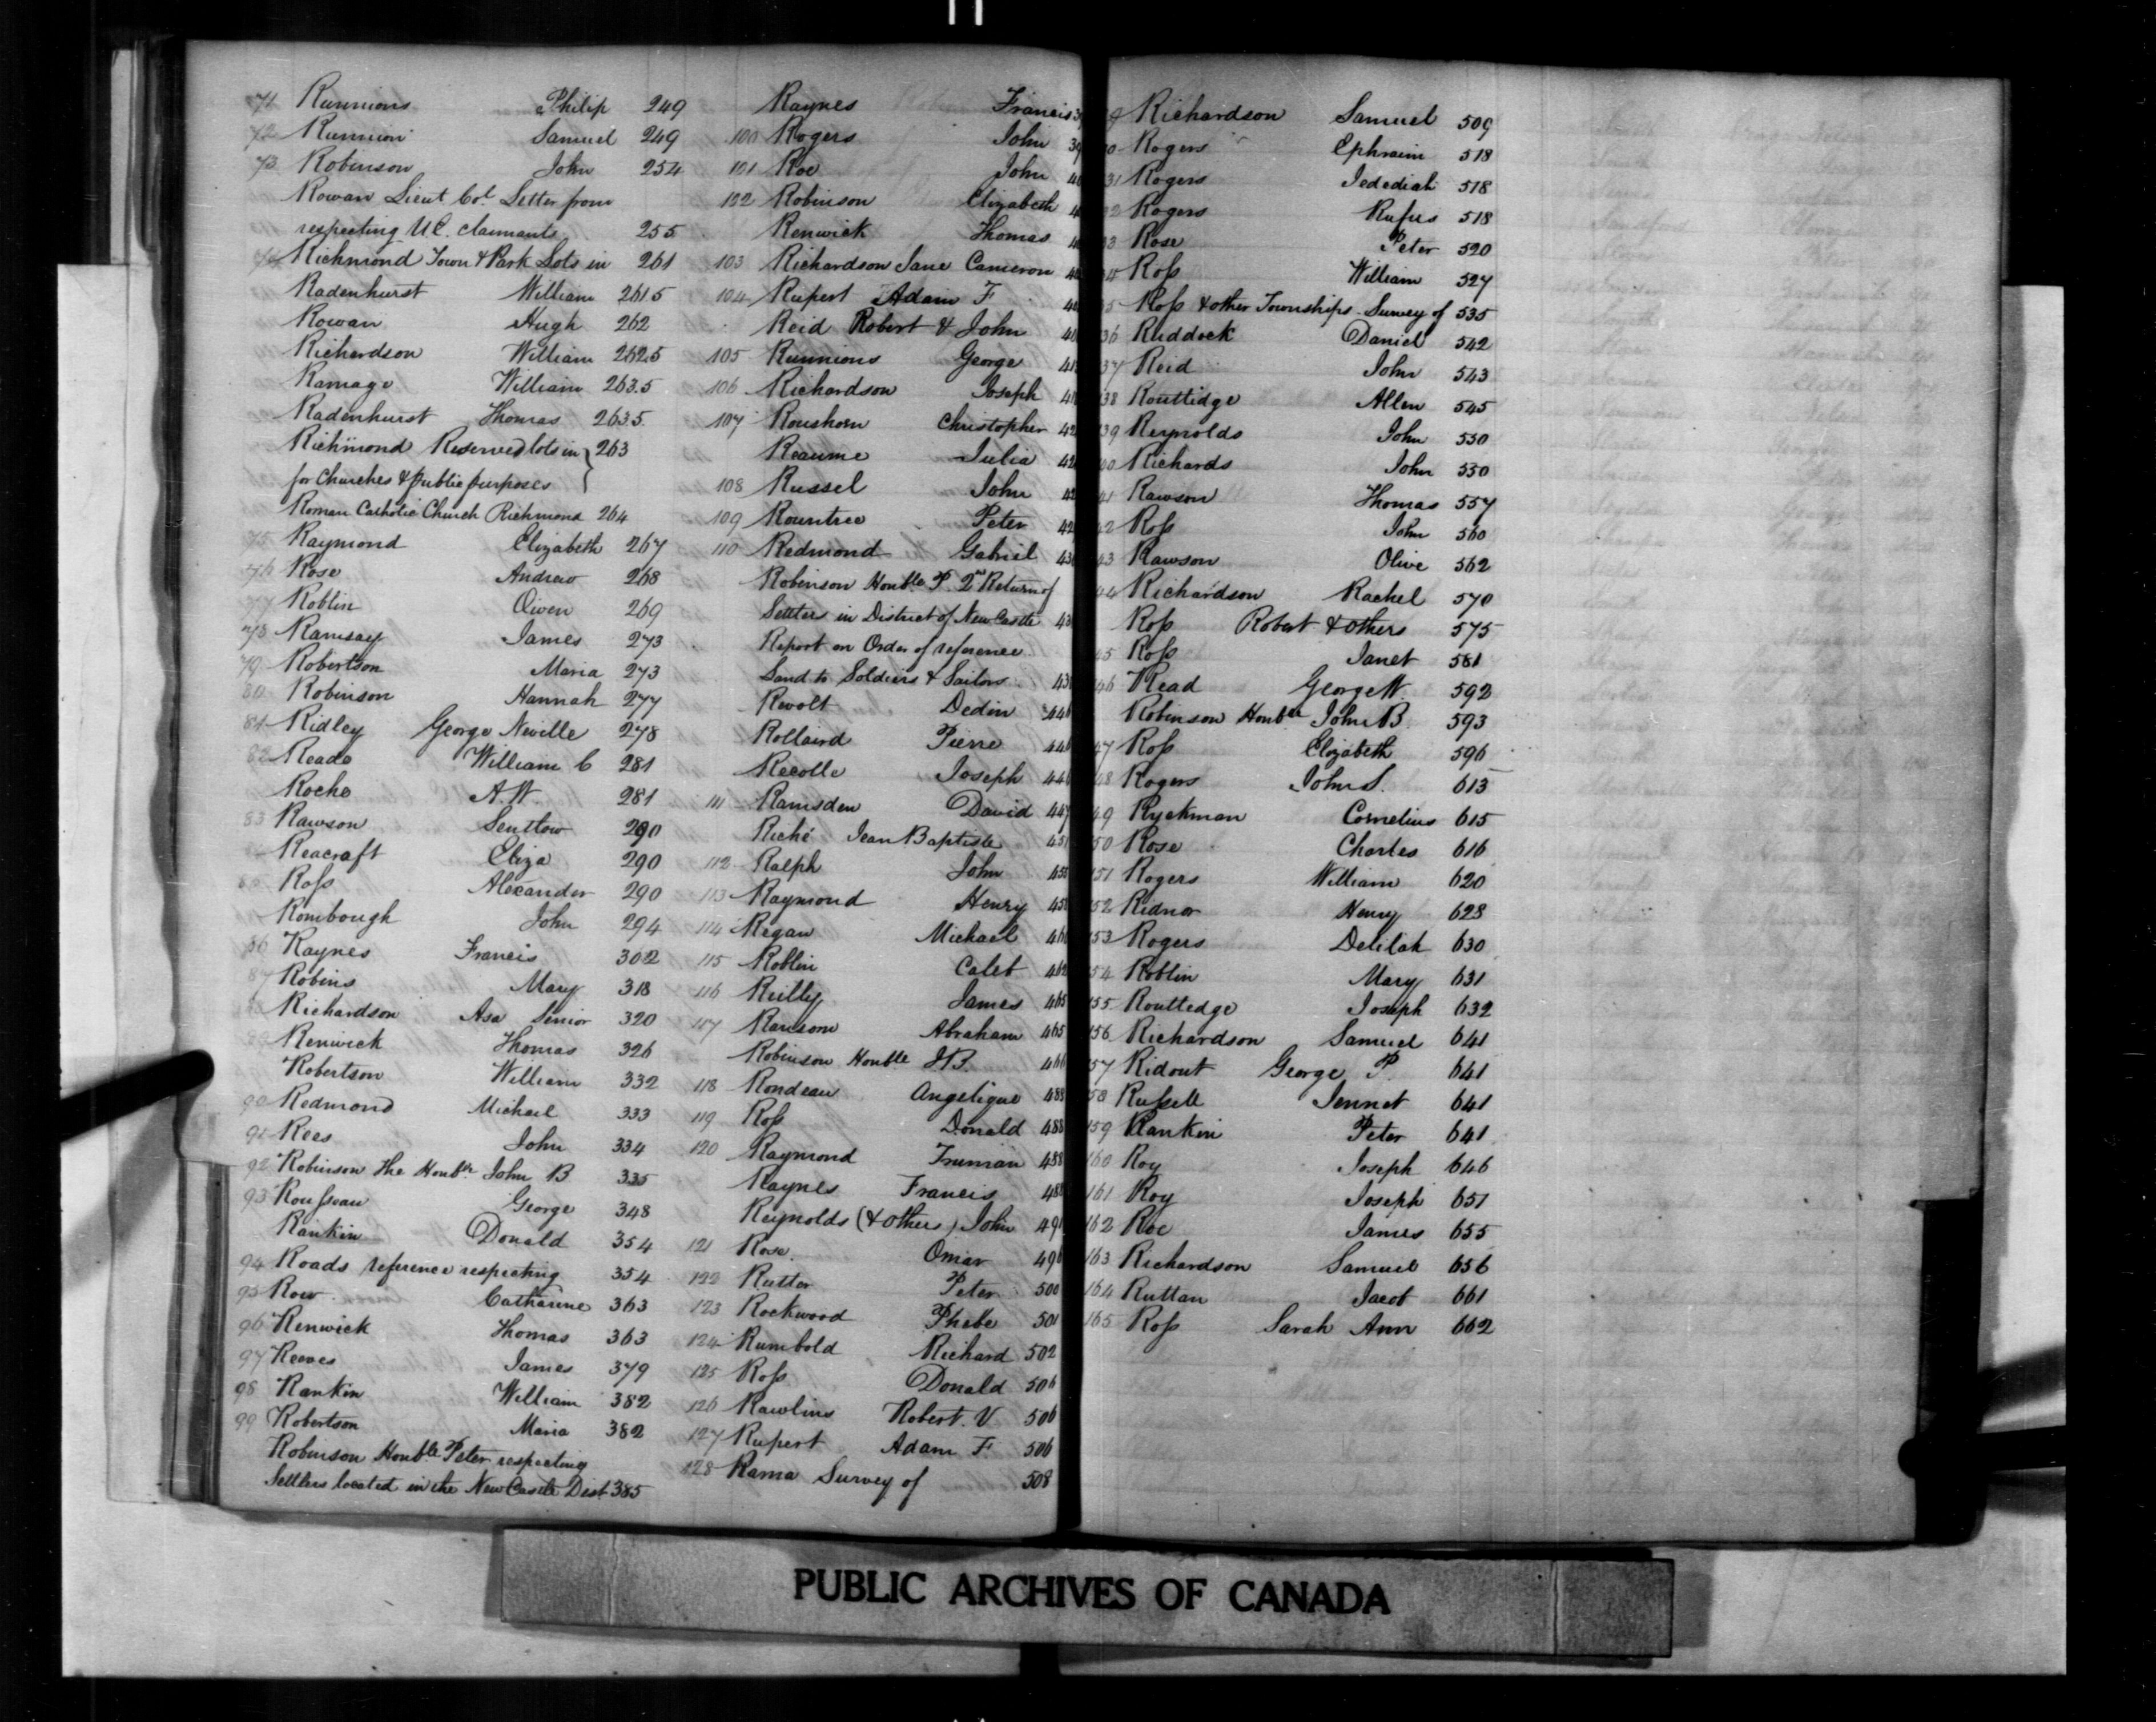 71 Runnions Philip 249
72 Runnion Samuel 249
73 Robinson John 254
Rowan Lieut Col. Letter from
respecting U.C. claimants 255
74 Richmond Town & Park Lots in 261
Radenhurst William 261.5
Rowan Hugh 262
Richardson William 262.5
Ramage William 263.5
Radenhurst Thomas 263.5
Richmond Reserved lots in 263
for Churches & Public purposes
Roman Catholic Church Richmond 264
75 Raymond Elizabeth 267
76 Rose Andrew 268
77 Roblin Owen 269
78 Ramsay James 273
79 Robertson Maria 273
80 Robinson Hannah 277
81 Ridley George Neville 278
82 Reade William C 281
Roche A.W. 281
83 Rawson 290
Reacraft Eliza 290
Roſs Alexander 290
Rombough John 294
86 Raynes Francis 302
87 Robins Mary 318
Richardson Asa Senior 320
Renwick Thomas 326
Robertson William 332
90 Redmond Michael 333
91 Rees John 334
92 Robinson The Honble. John B 335
93 Rouſseau George 348
Rankin Donald 354
94 Roads reference respecting 354
95 Row Catharine 363
96 Renwick Thomas 363
97 Reeves James 379
98 Rankin William 382
99 Robertson Maria 382
Robinson Honble Peter respecting
Settlers located in the New Castle Dist 385
Raynes Francis
100 Rogers John
101 Roe John
122 Robinson Elizabeth
Renwick Thomas
103 Richardson Jane Cameron
104 Rupert Adam F
Reid Robert & John
105 Runnions George
106 Richardson Joseph
107 Roushorn Christopher
Reaume Julia
108 Russel John
109 Rountree Peter
110 Redmond Gabriel
Robinson Honble P. 2nd Return of
Settlers in District of New Castle
Report on Order of reference
Land to Soldiers & Sailors
Revolt Dedin
Rollaird Pierre
Recolle Joseph
111 Ramsden David 447
Riché Jean Baptiste
112 Ralph John
113 Raymond Henry
114 Regan Michael
115 Roblin Caleb 462
116 Reilly James 465
117 Ransom Abraham 465
Robinson Honble J.B. 466
118 Rondeau Angelique 488
119 Roſs Donald 488
120 Raymond Truman 488
Raynes Francis 488
Reynolds (& others) John
121 Rose Omar
122 Rutter Peter 500
123 Rockwood Phebe 501
124 Rumbold Richard 502
125 Roſs Donald 506
126 Rawlins Robert. V 506
127 Rupert Adam F 506
128 Rama Survey of 508
Richardson Samuel 509
Rogers Ephraim 518
31 Rogers Jedediah 518
Rogers Rufus 518
33 Rose Peter 520
Roſs William 527
Roſs & other Townships - Survey of 535
36 Ruddock Daniel 542
37 Reid John 543
38 Routtidge Allen 545
39 Reynolds John 550
Richards John 550
41 Rawson Thomas 557
42 Roſs John 560
43 Rawson Olive 562
44 Richardson Rachel 570
Roſs Robert & others 575
45 Roſs Janet 581
46 Read George W. 592
Robinson Honble John B. 593
47 Roſs Elizabeth 596
48 Rogers John S. 613
49 Ryckman Cornelius 615
50 Rose Charles 616
151 Rogers William 620
52 Ridner Henry 628
153 Rogers Delilah 630
54 Roblin Mary 631
155 Routledge Joseph 632
156 Richardson Samuel 641
57 Ridout George P. 641
58 Ruſsell Jennet 641
159 Rankin Peter 641
160 Roy Joseph 646
161 Roy Joseph 651
162 Roe James 655
163 Richardson Samuel 656
164 Ruttan Jacob 661
165 Roſs Sarah Ann 662
PUBLIC ARCHIVES OF CANADA